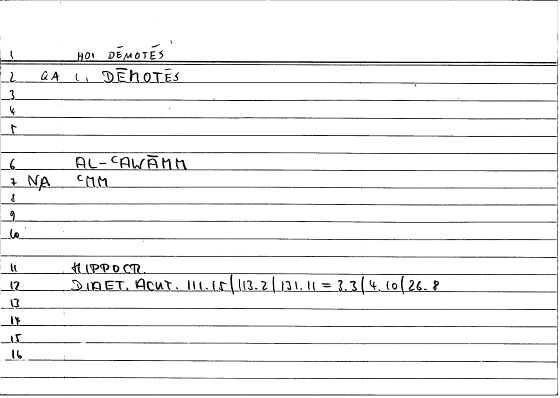 1 HOI DĒMOTĒS
2 QA 1, DĒMOTĒS
3
4
5
6 AL-ᶜAWĀMM
7 NA ᶜMM
8
9
10
11 HIPPOCR.
12 DIAET. ACUT. 111.15 | 113.2 | 131.11 = 3.3 | 4.10 | 26.8
13
14
15
16